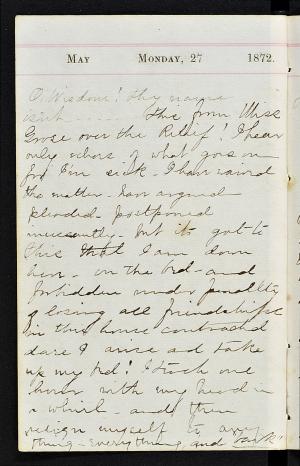 May Monday, 27 1872.
O, Wisdom! thy name
isnt ...... this from Miss
Grose over the Relief! I hear
only echoes of what goes on
for I'm sick. I have waived
the matter - have argued
pleaded - postponed
incessantly - but it's got to
this that I am down
here - on the bed - and
forbidden under penalty
of losing all friendships
in this house contracted
dare I arise and take
up my bed! I took one
hour with my head in
a whirl - and then
resign myself to any
thing - everything, and